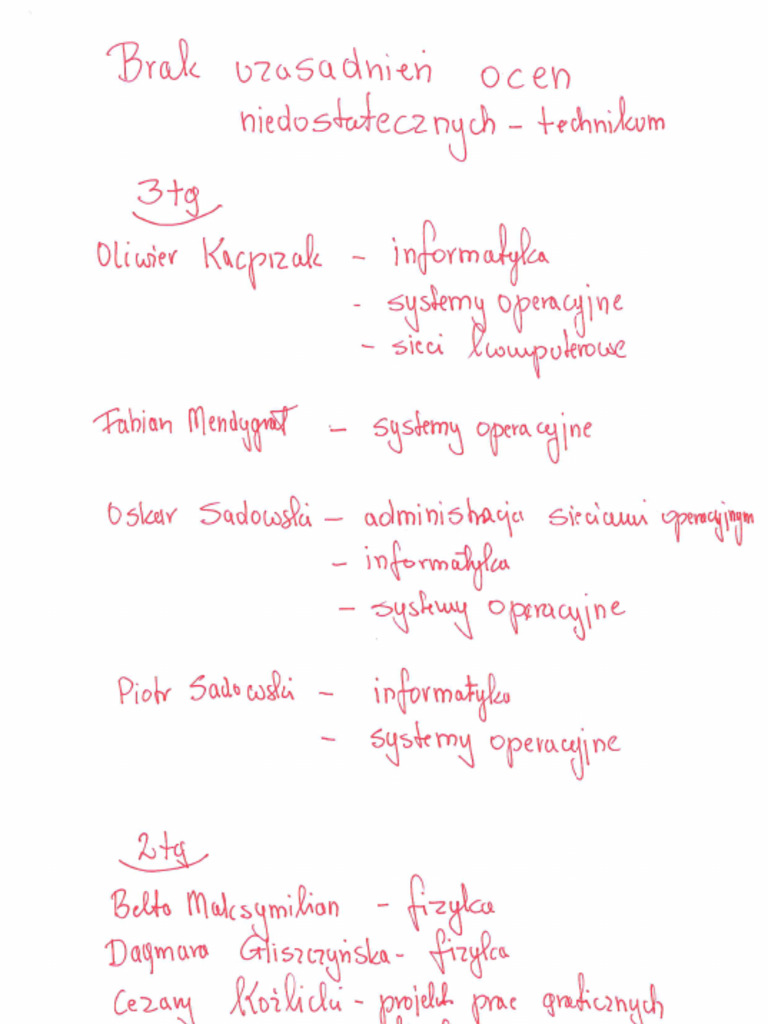 Brak uzasadnień ocen
niedostatecznych - technikum
3tg
Oliwier Kacprzak - informatyka
- systemy operacyjne
- sieci komputerowe
Fabian - systemy operacyjne
Oskar Sadowski - administracja sieciami operacyjnym
- informatyka
- systemy operacyjne
Piotr Sadowski - informatyka
- systemy operacyjne
2tg
Belta Maksymilian - fizyka
Dagmara Gliszczyńska - fizyka
Cezary Koźlicki - projekt prac graficznych